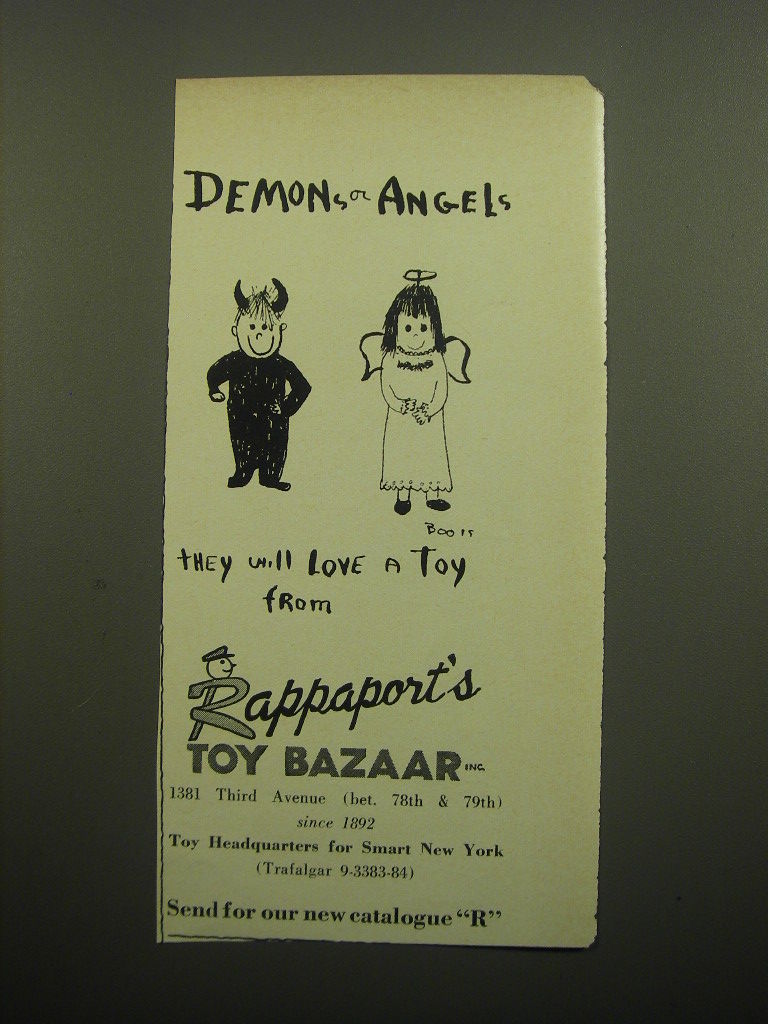 DEMONs or ANGELs
BOOIT
tHEY will LOVE A Toy
fRom
Rappaport's
TOY BAZAAR INC.
1381 Third Avenue (bet. 78th & 79th)
since 1892
Toy Headquarters for Smart New York
(Trafalgar 9-3383-84)
Send for our new catalogue “R”